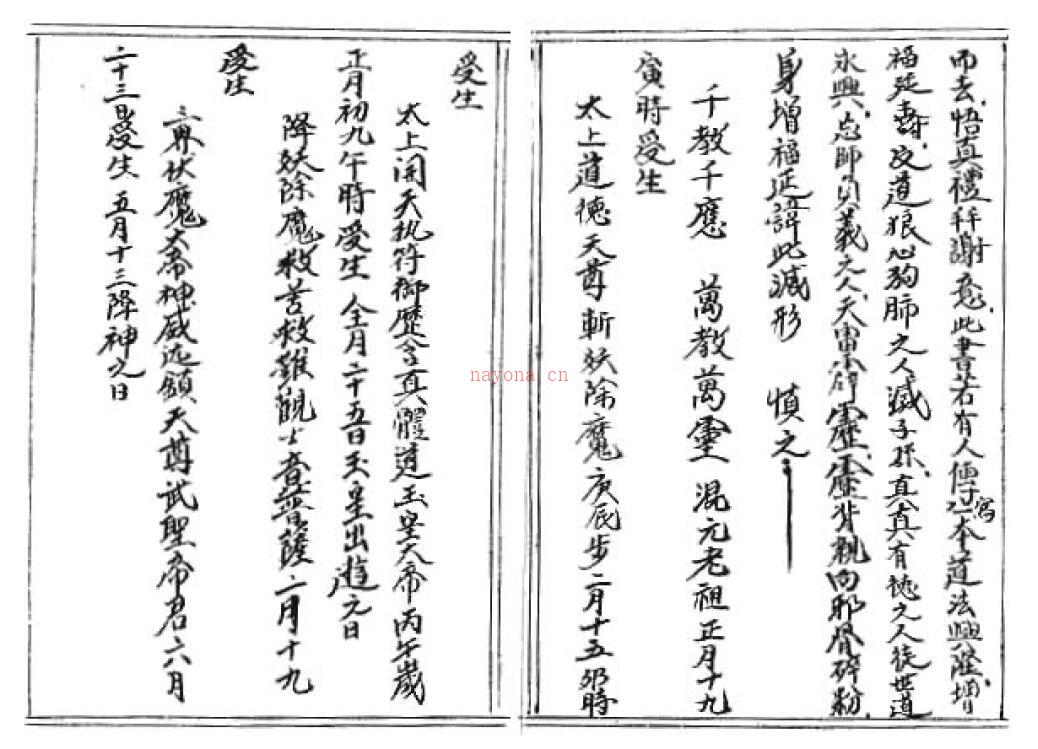 而去悟真禮拜謝意此書若有人傳寫一本道法興隆增
福延壽反道狼心狗肺之人滅子孫真真有德之人徒世道
永興忘師負義之人天雷靈靈背親向邪骨碎粉
身增福延壽此滅形 慎之
千教千應 萬教萬靈 混元老祖正月十九
寅時受生
太上道德天尊斬妖除魔庚辰步二月十五卯時
受生
太上開天执符御歷含真體道玉皇大帝丙午歲
正月初九午時受生 全月二十五日玉皇出遊之日
降妖除魔救苦救難觀士音菩薩二月十九
受生
三界伏魔大帝神威远鎮天尊武聖帝君六月
二十三日受生 五月十三降神之日
nayona.cn